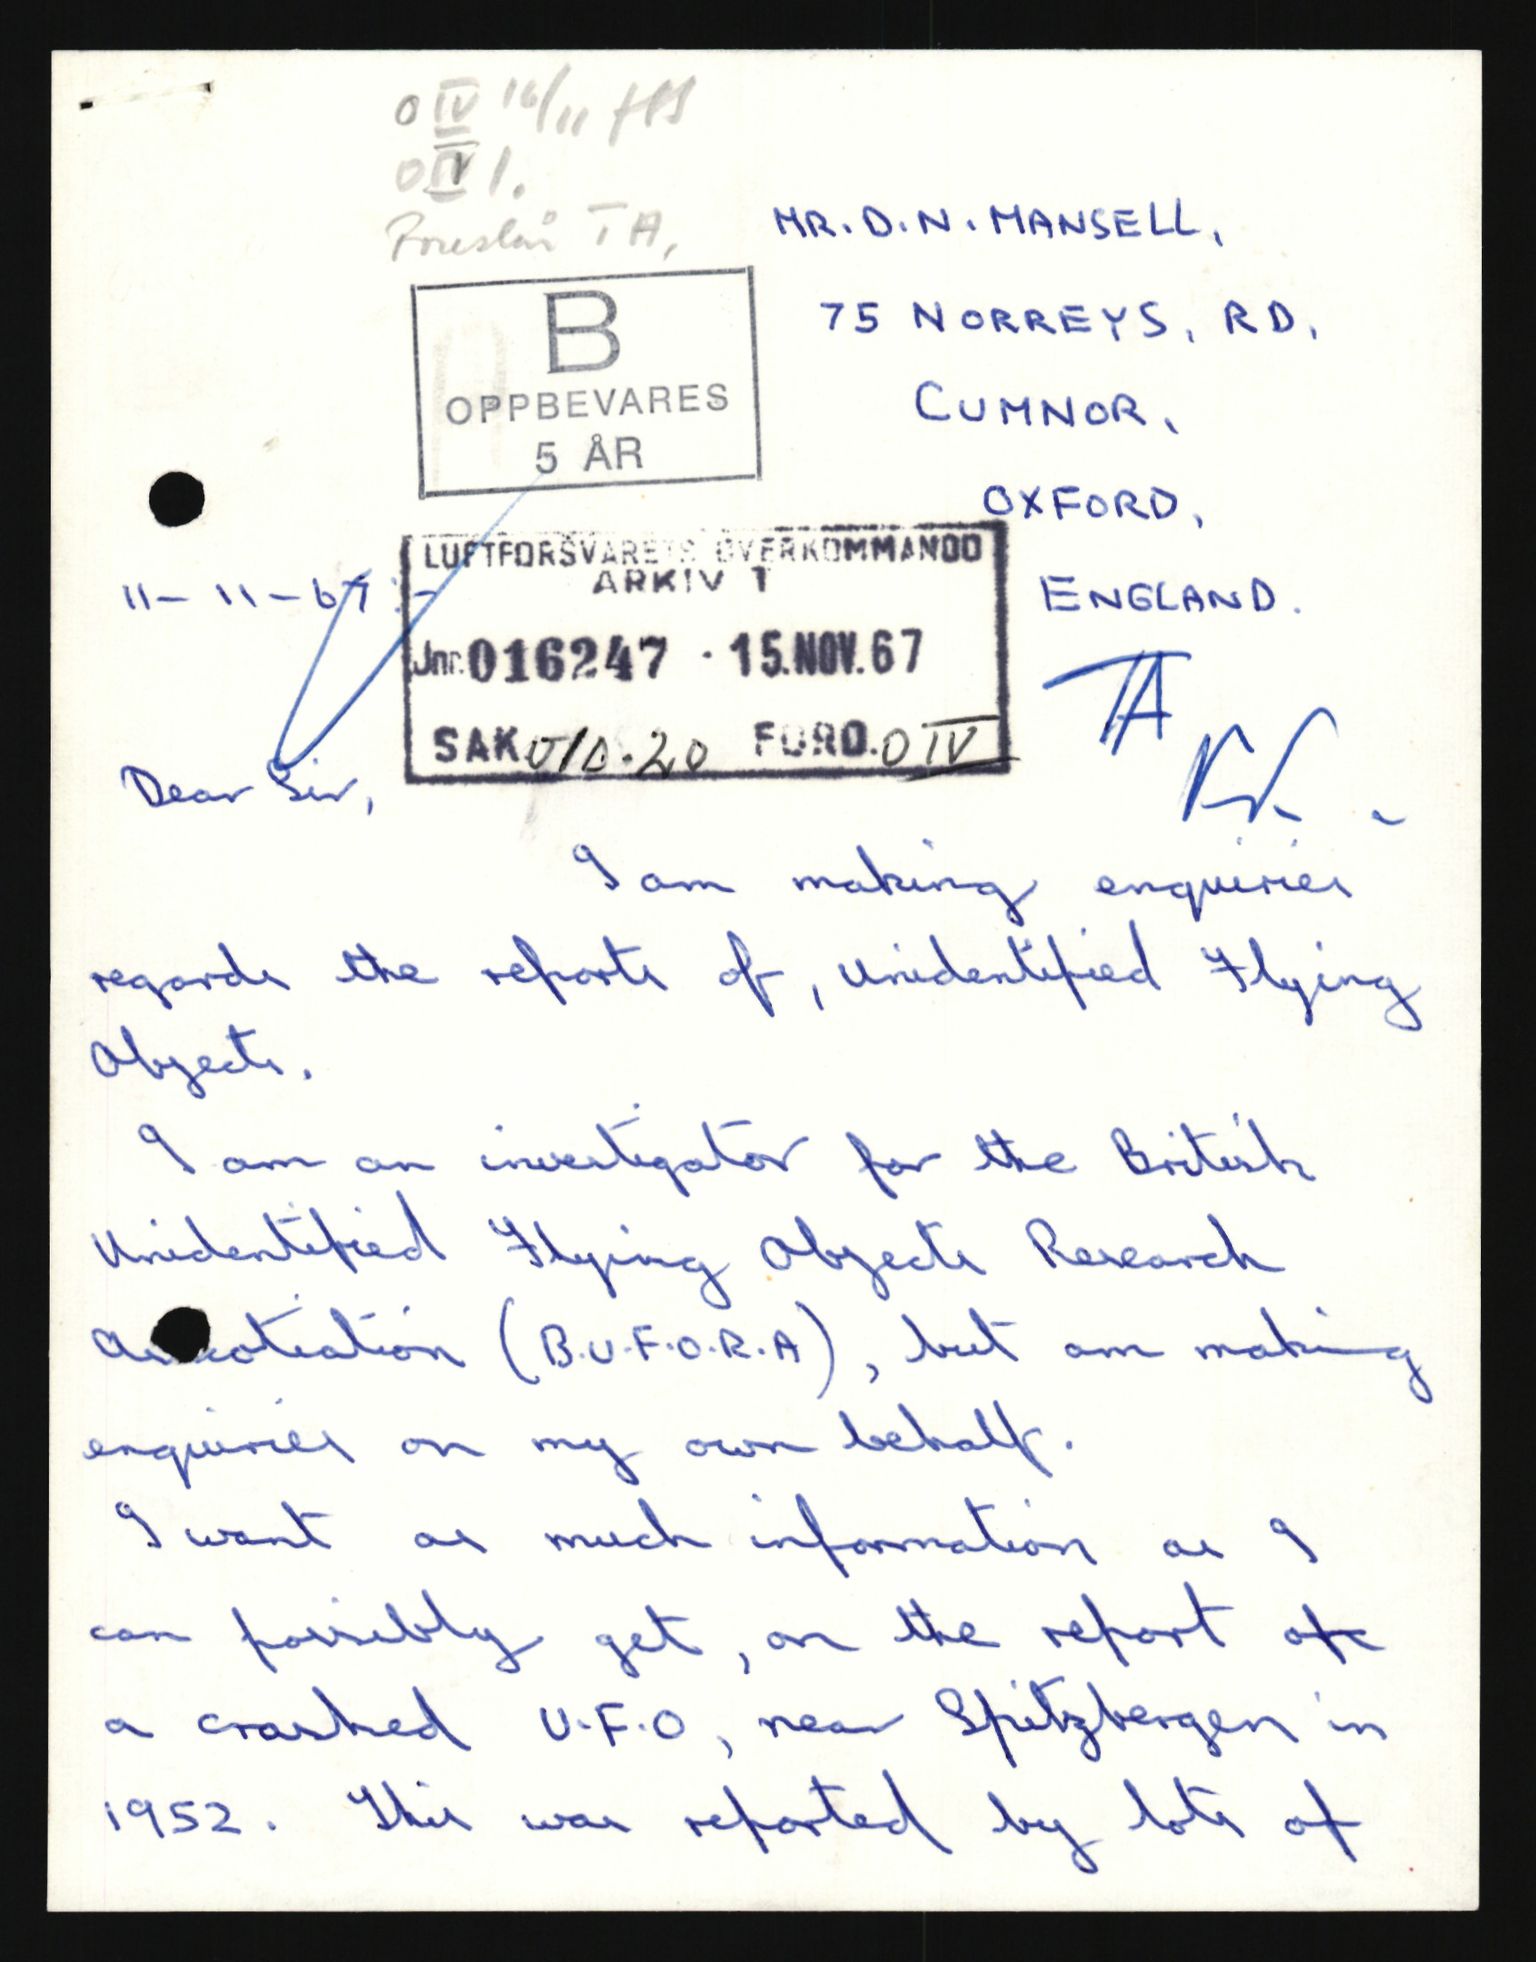 O IV 16/11
O IV 1.
Foreslår TA,
MR. D. N. MANSELL,
75 NORREYS, RD,
CUMNOR,
OXFORD,
ENGLAND.
B
OPPBEVARES
5 ÅR
LUFTFORSVARETS OVERKOMMANDO
ARKIV 1
Jnr. 016247 · 15. NOV. 67
SAK 20 FORD. O IV
11-11-67:-
TA
Dear Sir,
I am making enquiries
regards the reports of, Unidentified Flying
Objects.
I am an investigator for the British
Unidentified Flying Objects Research
(B.U.F.O.R.A), but am making
enquiries on my own behalf.
I want as much information as I
can possibly get, on the report of
a crashed U.F.O, near Spitzbergen in
1952. This was reported by lots of